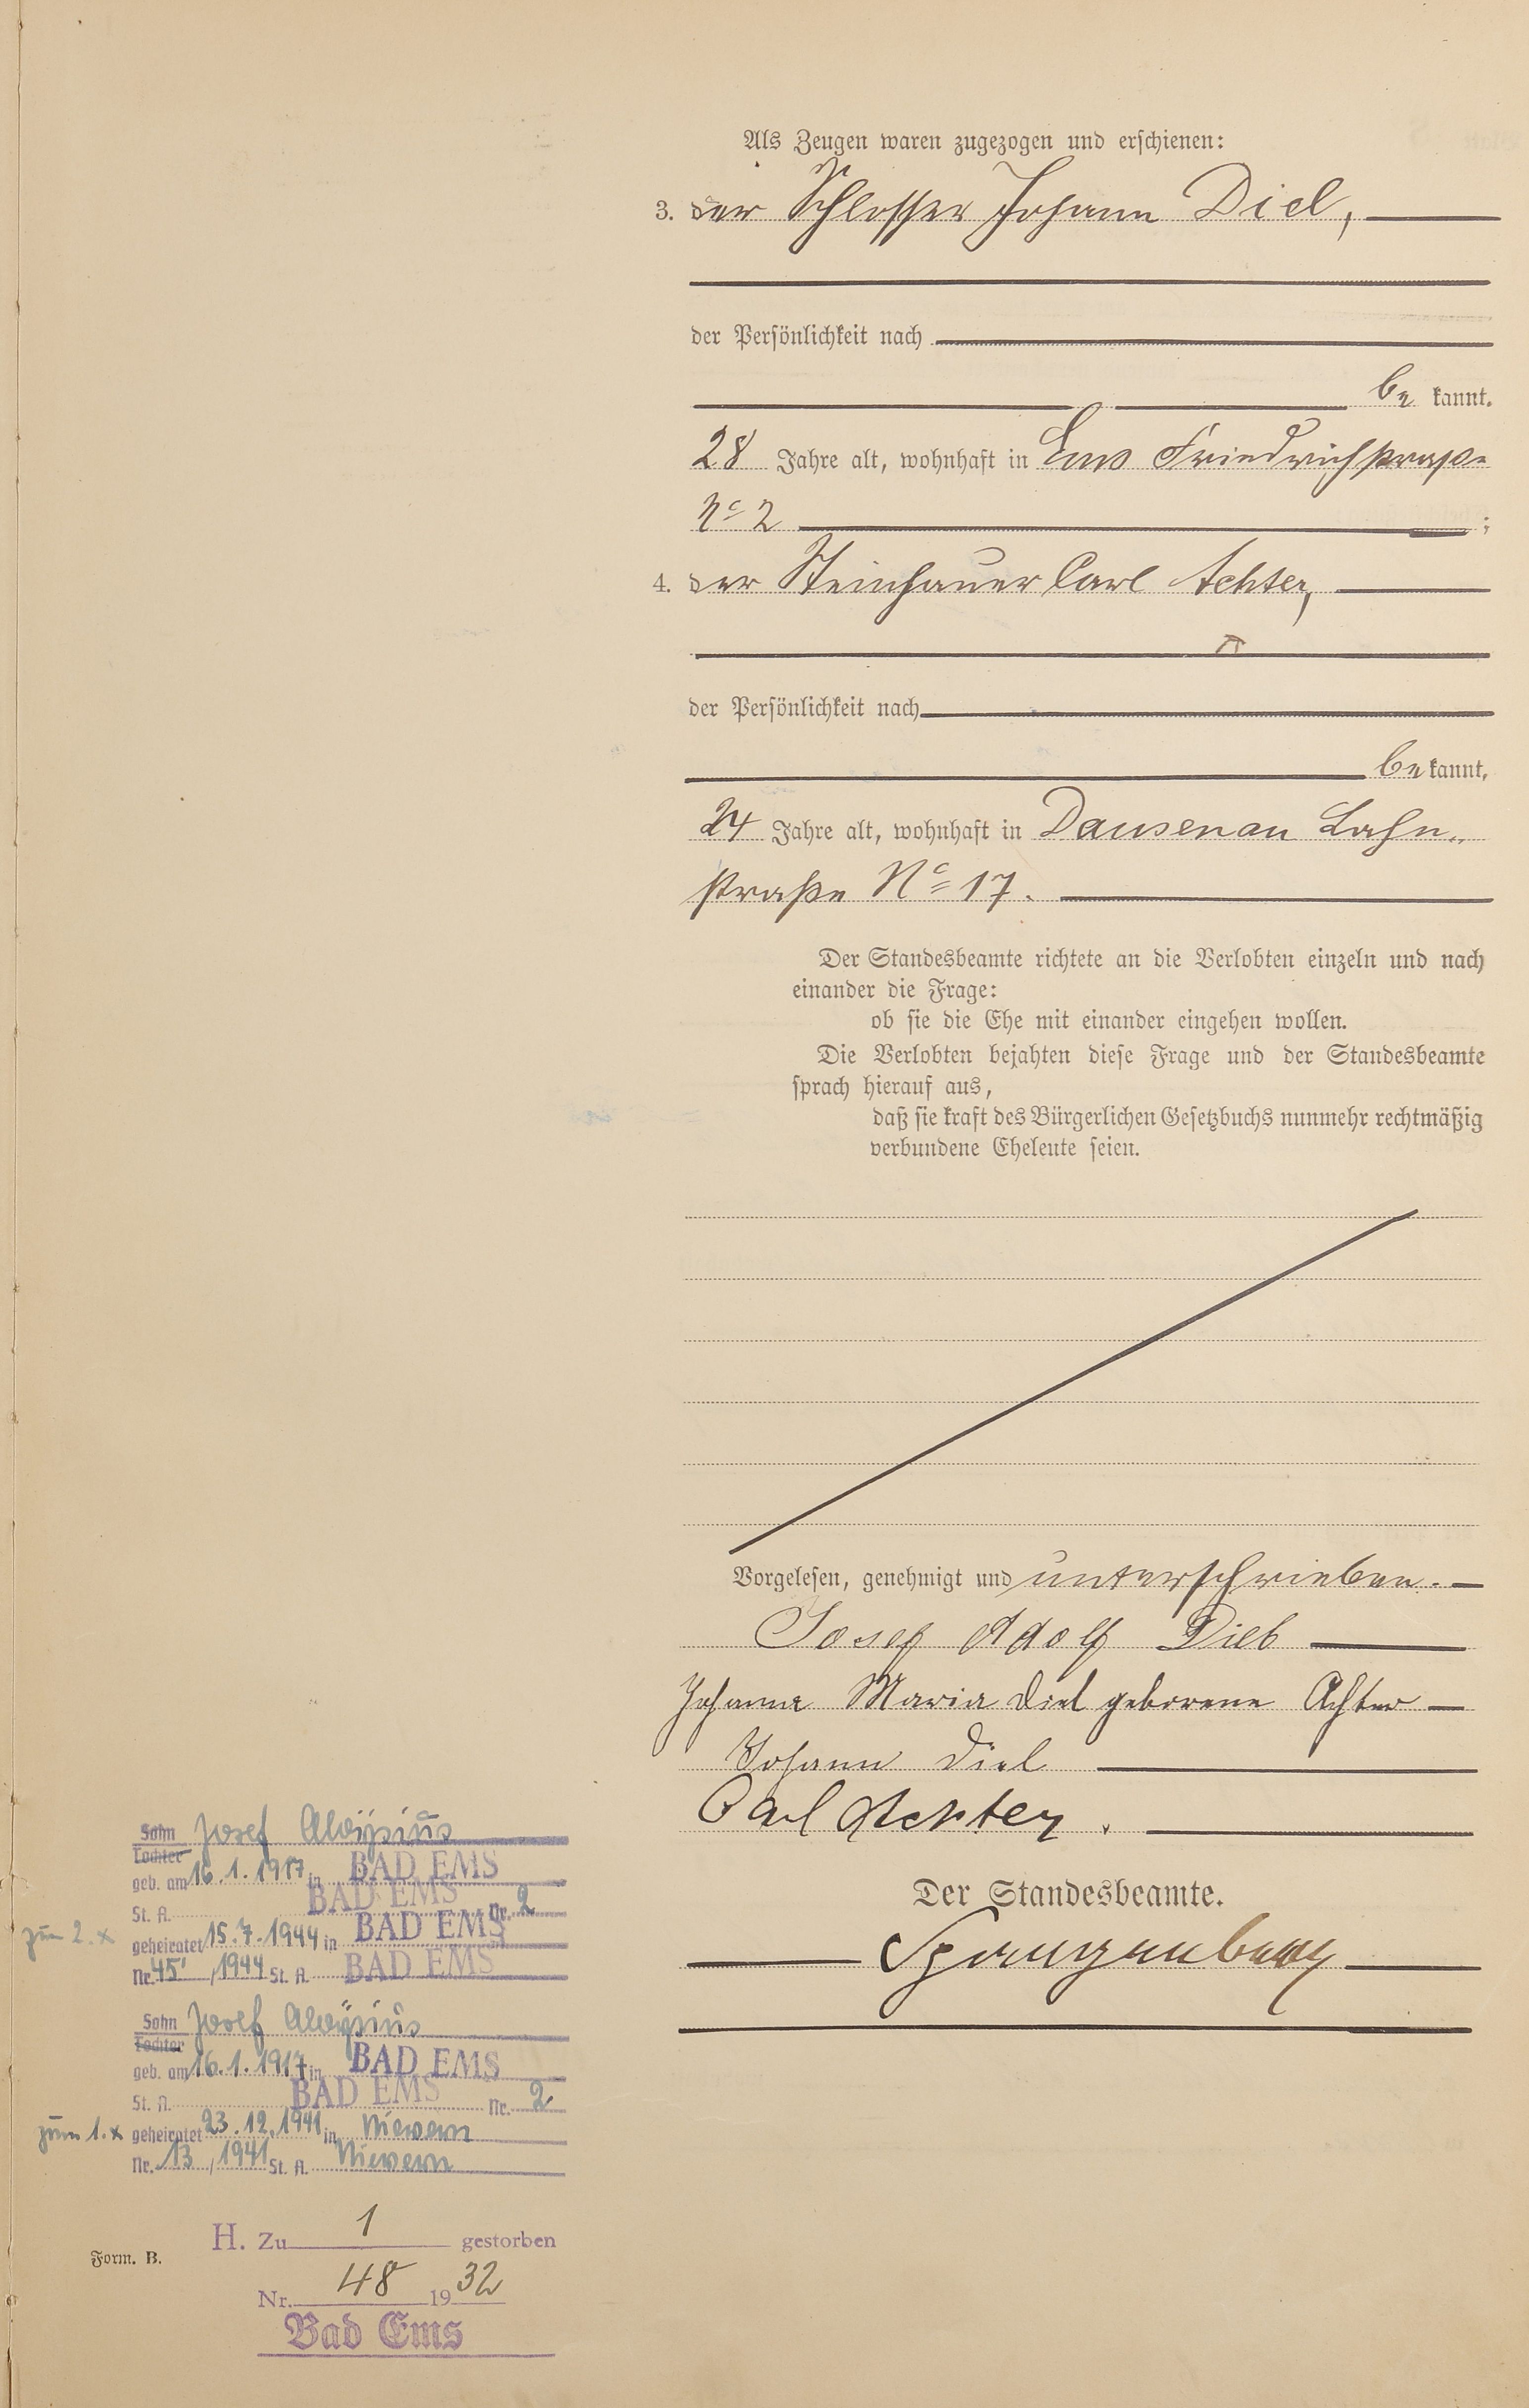 Als Zeugen waren zugezogen und erschienen:
3. der Schlosser Johann Diel,
der Persönlichkeit nach
be kannt.
28 Jahre alt, wohnhaft in Ems Friedrichstraße
No 2 ;
4. der Steinhauer Carl Achter,
der Persönlichkeit nach
be kannt,
24 Jahre alt, wohnhaft in Dausenau Lahn-
straße No 17.
Der Standesbeamte richtete an die Verlobten einzeln und nach
einander die Frage:
ob sie die Ehe mit einander eingehen wollen.
Die Verlobten bejahten diese Frage und der Standesbeamte
sprach hierauf aus,
daß sie kraft des Bürgerlichen Gesetzbuchs nunmehr rechtmäßig
verbundene Eheleute seien.
Vorgelesen, genehmigt und unterschrieben.
Josef Adolf Diel
Johanna Maria Diel geborene Achter
Johann Diel
Carl Achter.
Der Standesbeamte.
Spangenberg
Sohn Josef Aloÿsius
Tochter
geb. am 16.1.1917 in BAD EMS
St. A. BAD EMS Nr. 2
zum 2. x geheiratet 15.7.1944 in BAD EMS
Nr. 45 / 1944 St. A. BAD EMS
Sohn Josef Aloÿsius
Tochter
geb. am 16.1.1917 in BAD EMS
St. A. BAD EMS Nr. 2
zum 1. x geheiratet 23.12.1941 in Nievern
Nr. 13 / 1941 St. A. Nievern
H. Zu 1 gestorben
Form. B.
Nr. 48 1932
Bad Ems